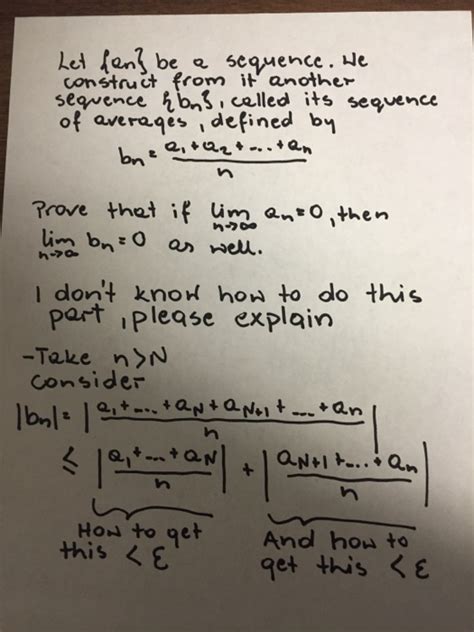 Let {an} be a sequence. We
construct from it another
sequence {bn}, called its sequence
of averages, defined by
bn = a1+a2+...+an / n
Prove that if lim n→∞ an=0, then
lim n→∞ bn=0 as well.
I don't know how to do this
part, please explain
-Take n>N
consider
|bn| = |a1+...+aN+aN+1+...+an / n|
≤ |a1+...+aN / n| + |aN+1+...+an / n|
How to get this < ε
And how to get this < ε